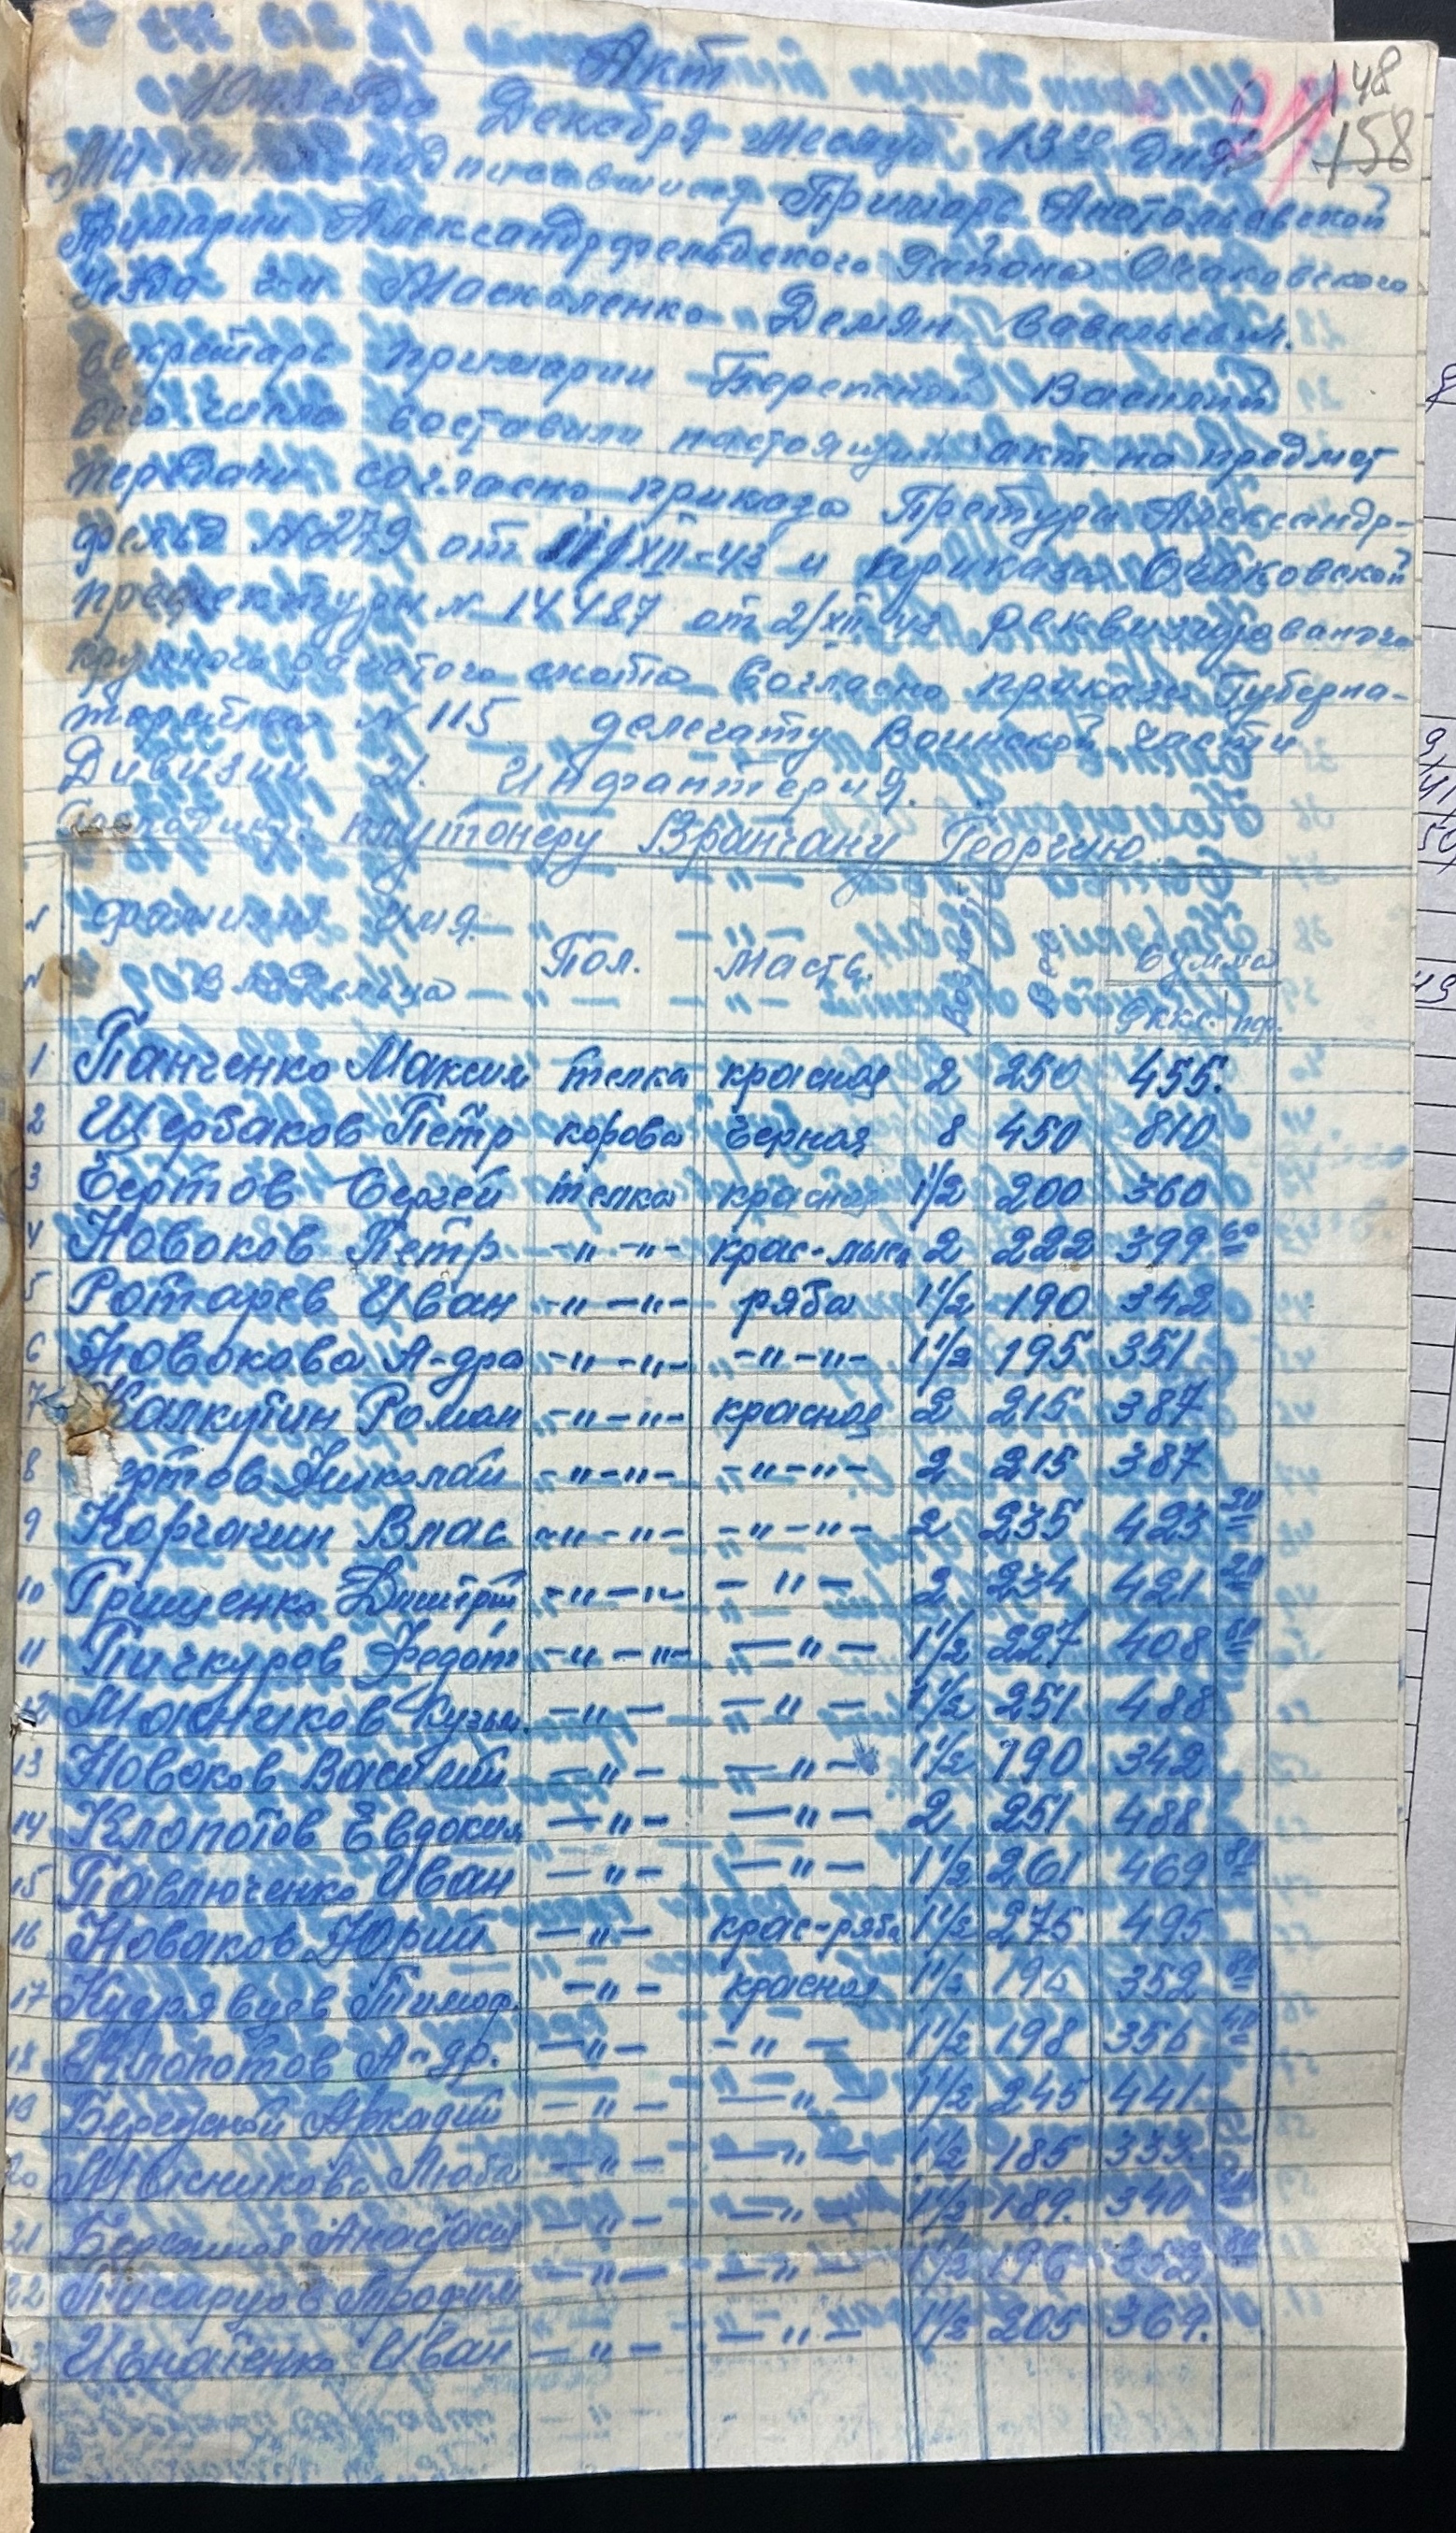 Акт
1943 года Декабря месяца 13го дня
Мы нижеподписавшиеся Примарь Анатольевской
Примарии Александрфельдского района Очаковского
уезда г-н Маскаленко Демян Савельевич.
Секретарь примарии Василий
сего числа составили настоящий акт на предмет
передачи согласно приказа Претуры Александр-
фельд №279 от XII-43 и приказа Очаковской
префектуры № 14487 от 2/XII 43 реквизированого
крупного рогатого скота Согласно приказа Губерна-
торства №115 делегату Воинской части
Дивизии 21. Инфантерия.
Господину плутонеру Врончану Георгию
148
158
№ № фамилия имя владельца Пол. Масть. возраст вес Сумма
Рккс. пф.
1 Панченко Максим телка красная 2 250 455.
2 Щербаков Пётр корова Черная 8 450 810
3 Бертов Сергей телка красная 1½ 200 360
4 Новоков Пётр -"-"- крас-лыс. 2 222 399 60
5 Ротарев Иван -"-"- ряба 1½ 190 342
6 Новокова А-дра -"-"- -"-"- 1½ 195 351
7 Калкутин Роман -"-"- красная 2 215 387
8 ертов Николай -"-"- -"-"- 2 215 387
9 Корчагин Влас -"-"- -"-"- 2 235 423
10 Грищенко Дмитрий -"-"- -"- 2 234 421 20
11 Пичкуров Федот -"-"- -"- 1½ 227 408 60
12 Кузьм. -"- -"- 1½ 251 488
13 Новоков Василий -"- -"- 1½ 190 342
14 Клопотов Евдоким -"- -"- 2 251 488
15 Павлюченко Иван -"- -"- 1½ 261 469 80
16 Новаков Юрий -"- крас-ряба 1½ 275 495
17 Кудрявцев Тимоф. -"- красная 1½ 196 352 80
18 Клопотов А-др. -"- -"- 1½ 198 356 40
19 Аркадий -"- -"- 1½ 245 441
20 Люба -"- -"- 1½ 185 333
21 Анастасия -"- -"- 1½ 189. 340 20
22 Писарцов Трофим -"- -"- 1½ 196 352 80
23 Игнатенко Иван -"- -"- 1½ 205 369.